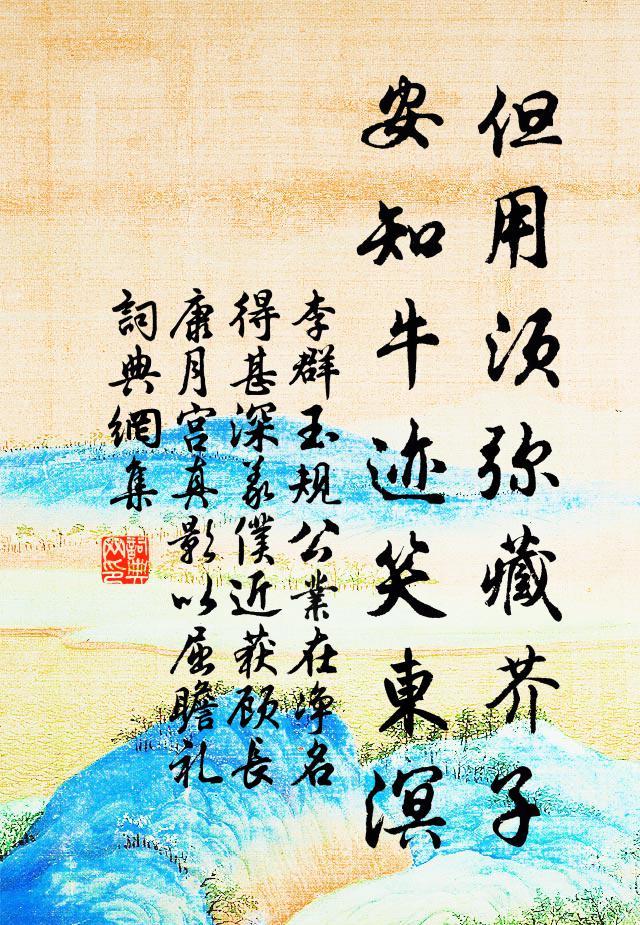 但用须弥藏芥子
安知牛迹笑東溟
李群玉規公業在净名
得甚深義僕近获顾長
康月宫真影以屈瞻礼
詞典網集